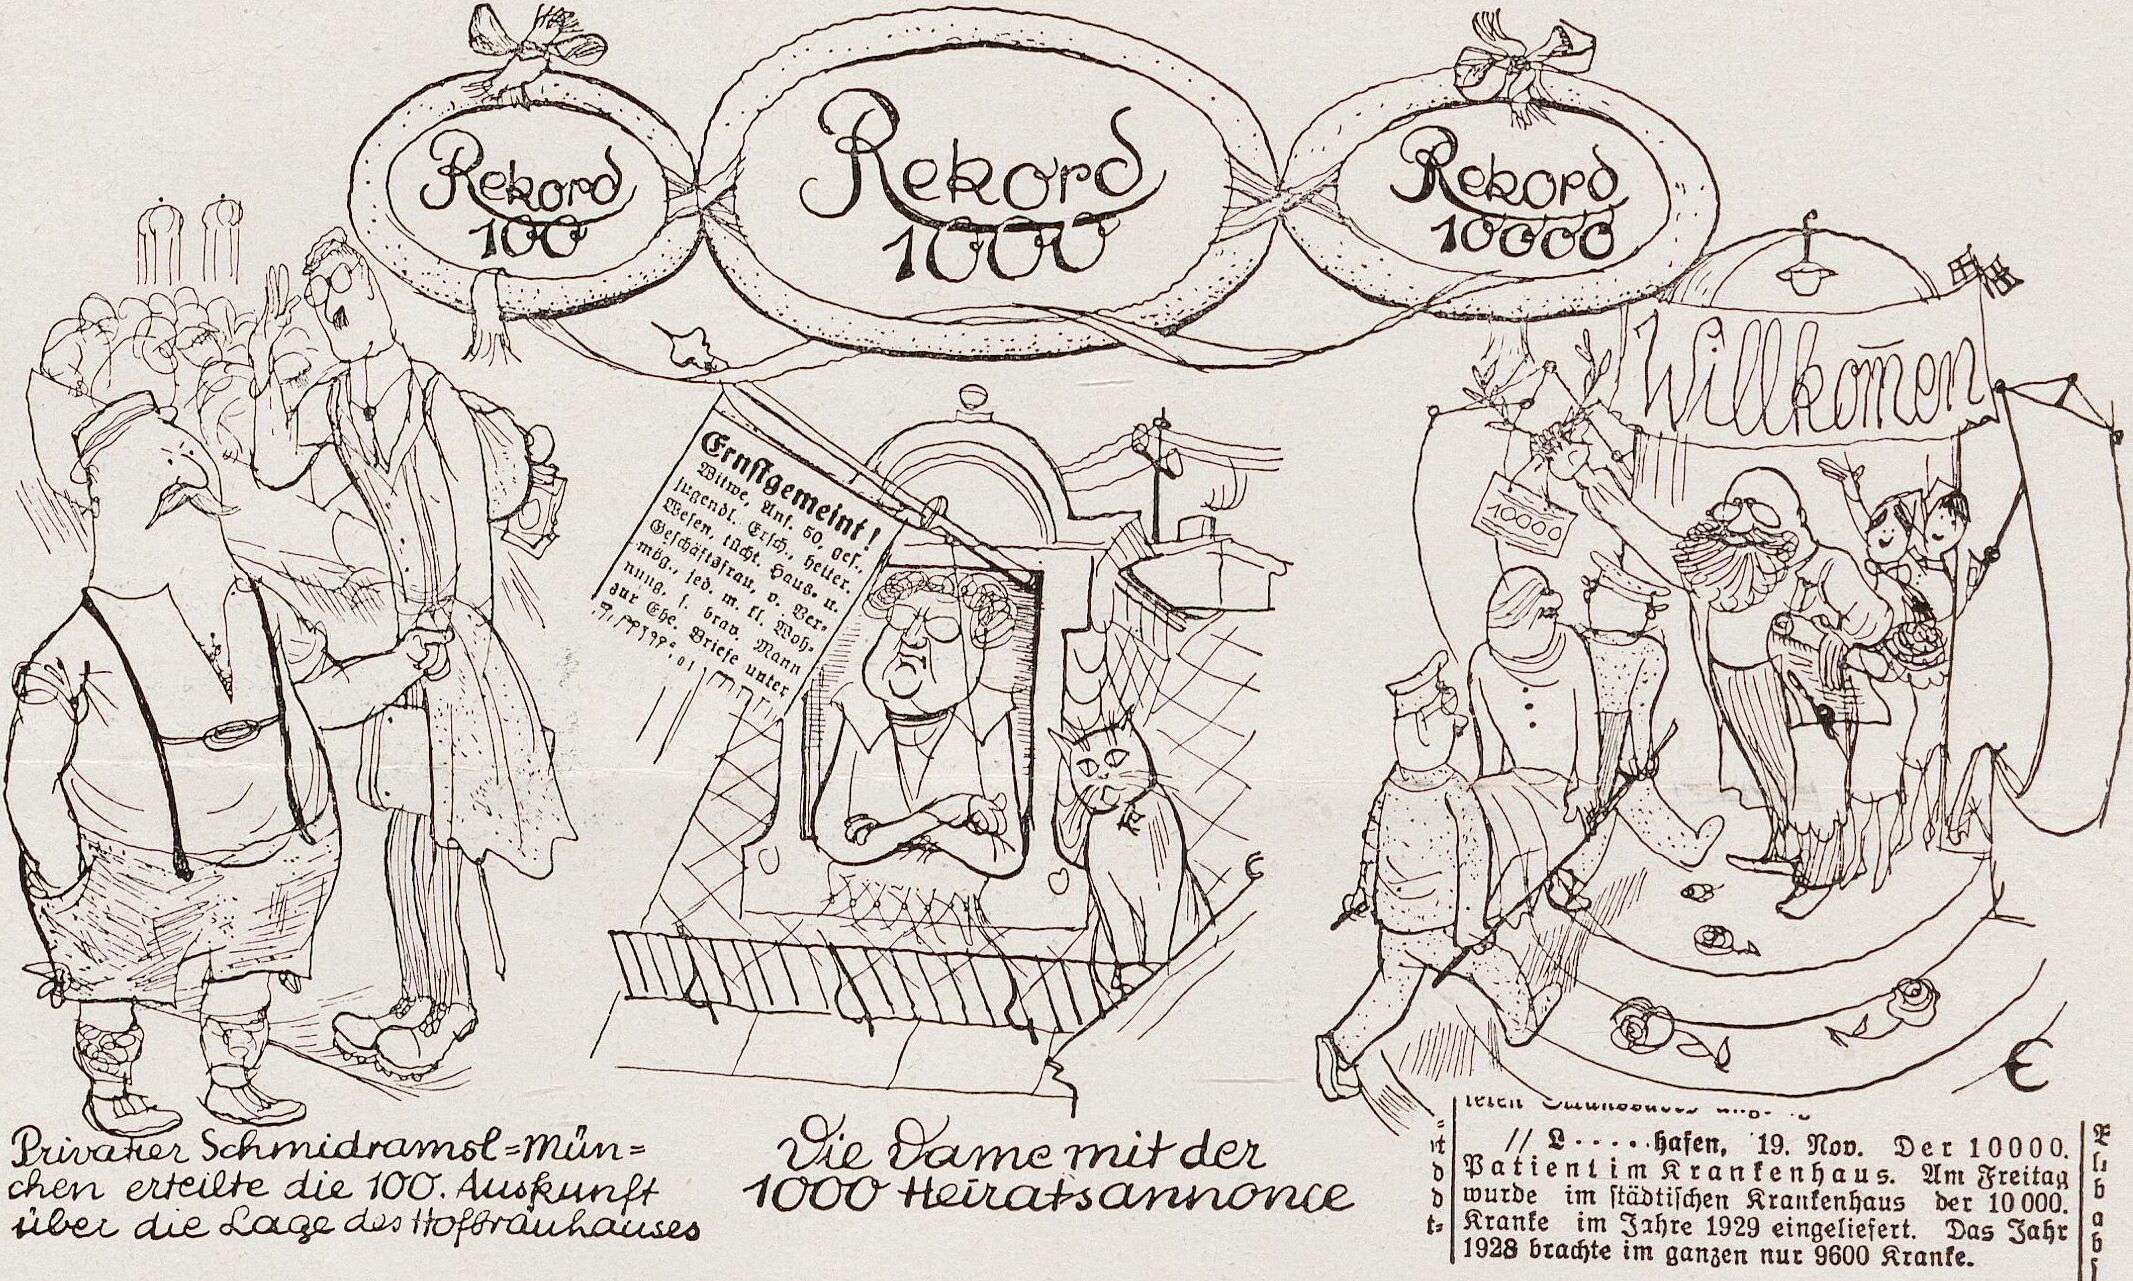 Rekord
100
Rekord
1000
Rekord
10000
Willkom̄en
10000
Ernstgemeint!
Witwe, Anf. 50, ges.,
jugendl. Ersch., heiter.
Wesen, tücht. Haus- u.
Geschäftsfrau, v. Ver-
mög., jed. m. kl. Woh-
nung, s. brav. Mann
zur Ehe. Briefe unter
Privatier Schmidramsl=Mün=
chen erteilte die 100. Auskunft
über die Lage des Hofbräuhauses
Die Dame mit der
1000 Heiratsannonce
// L.....hafen, 19. Nov. Der 10000.
Patient im Krankenhaus. Am Freitag
wurde im städtischen Krankenhaus der 10 000.
Kranke im Jahre 1929 eingeliefert. Das Jahr
1928 brachte im ganzen nur 9600 Kranke.